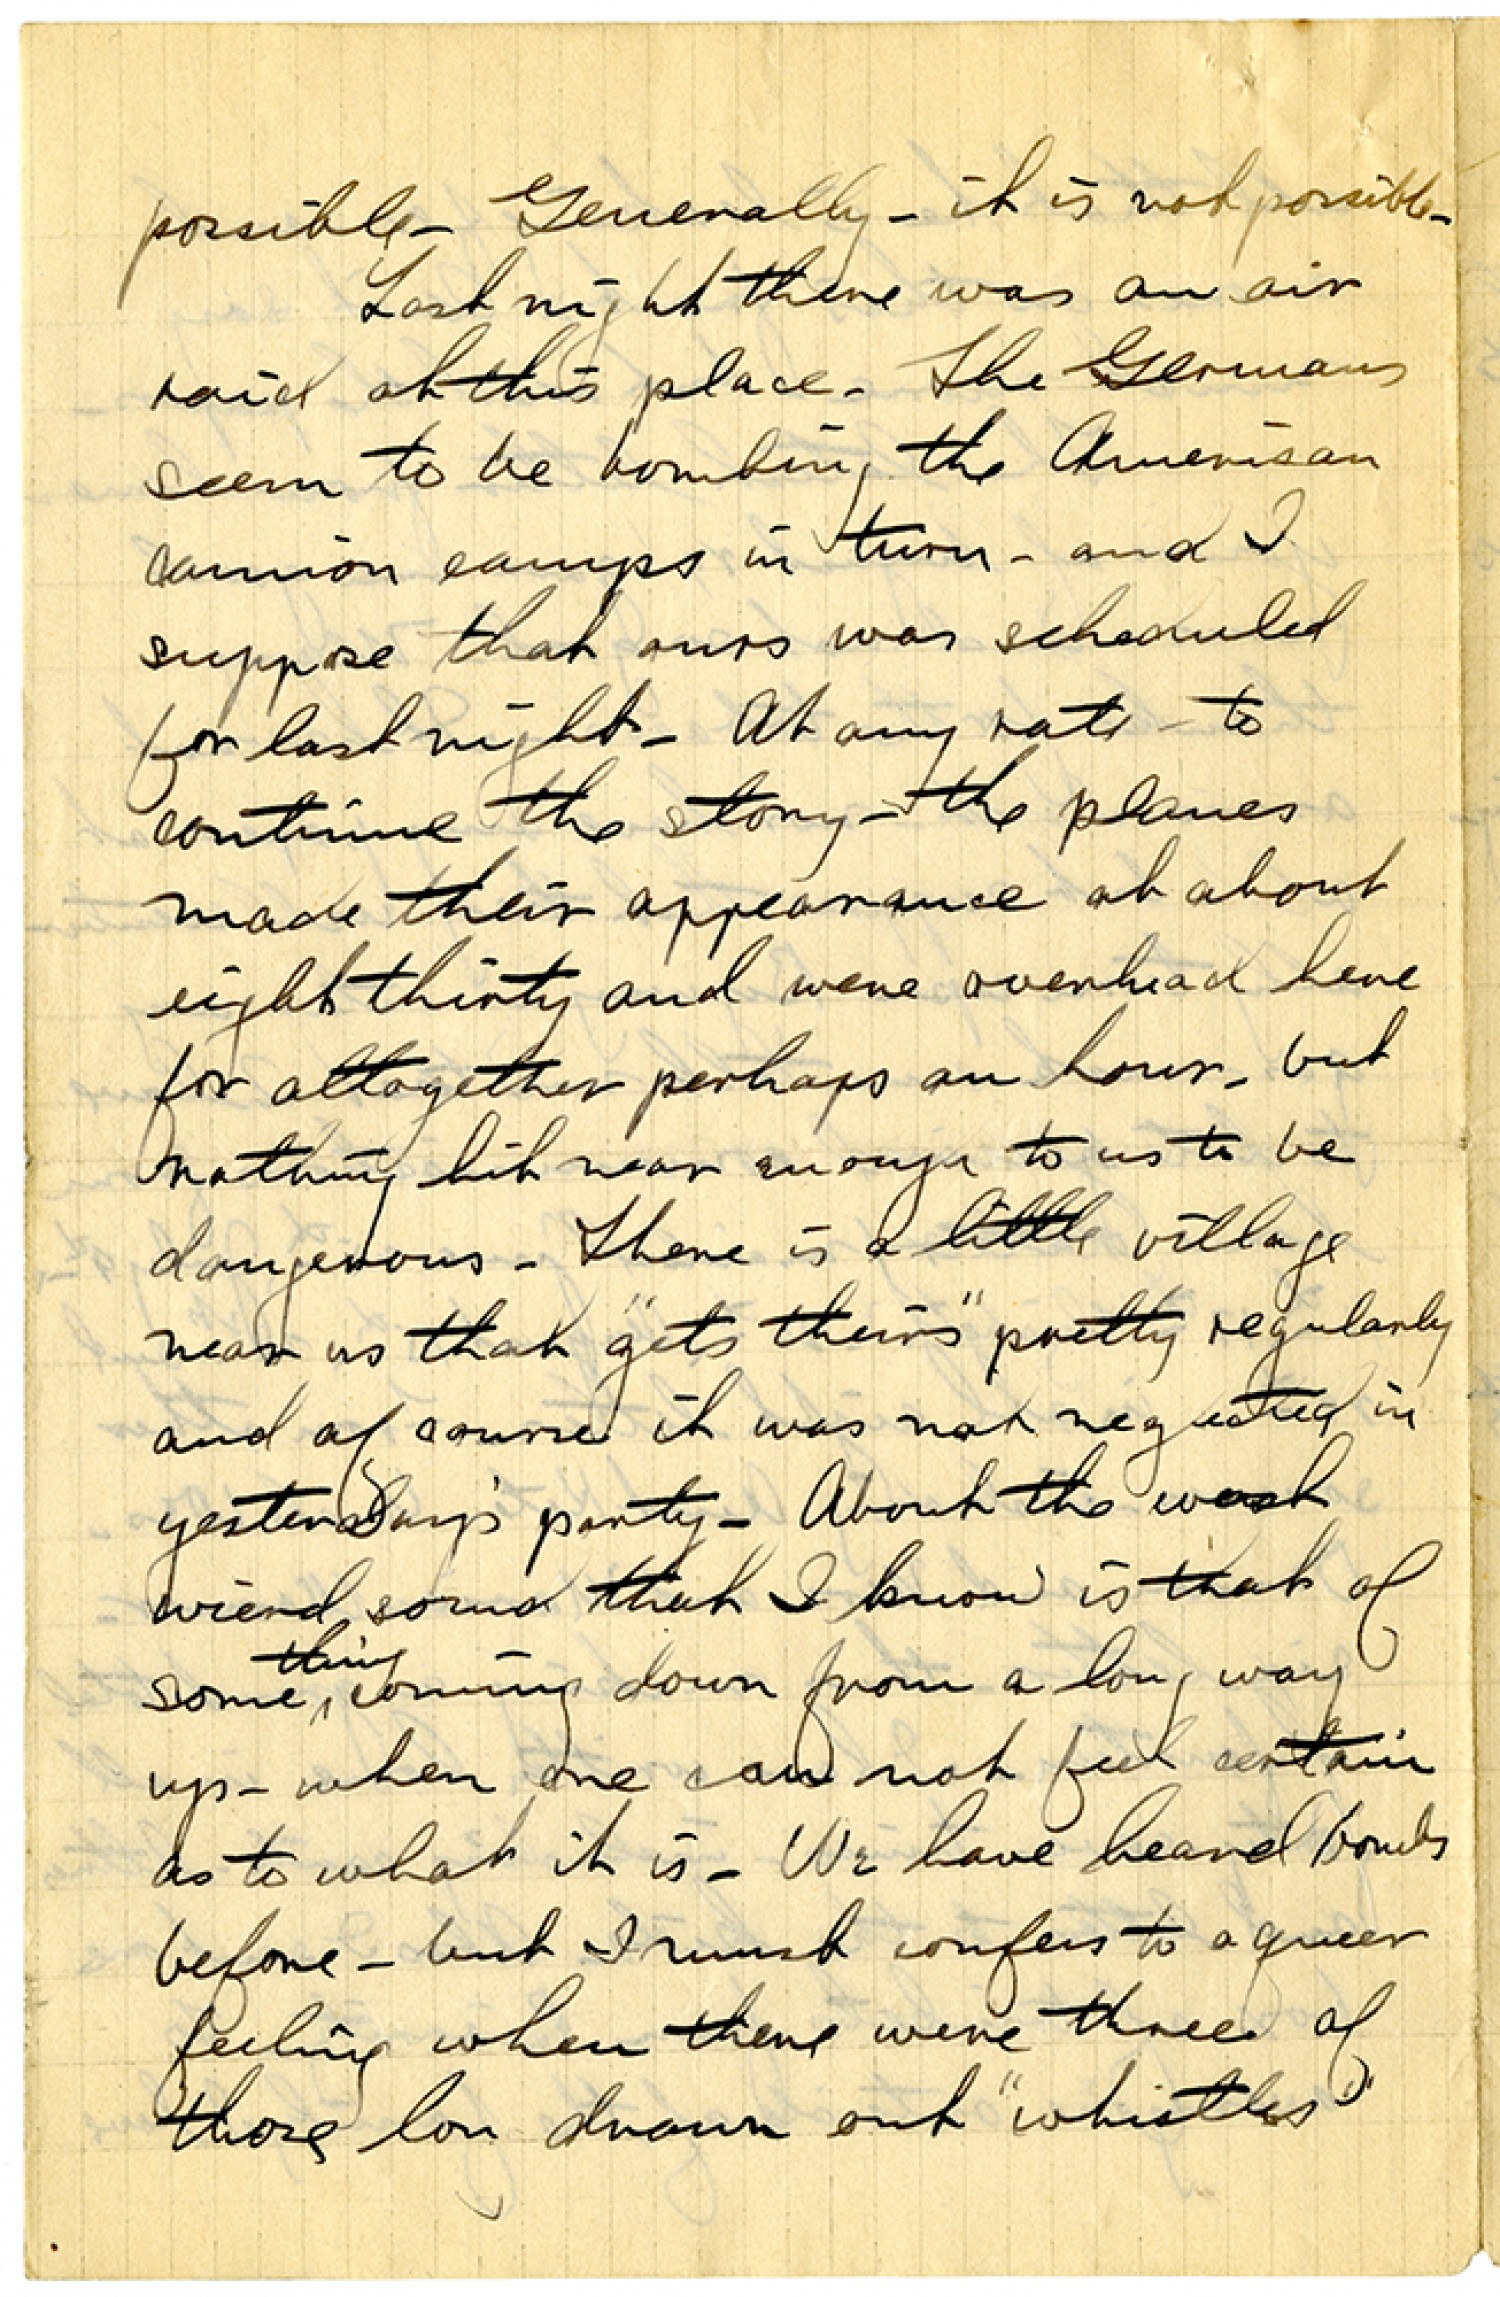 possible – Generally – it is not possible –
Last night there was an air
raid at this place – The Germans
seem to be bombing the American
camion camps in turn – and I
suppose that ours was scheduled
for last night – At any rate – to
continue the story – the planes
made their appearance at about
eight thirty and were overhead here
for altogether perhaps an hour – but
nothing hit near enough to us to be
dangerous – There is a little village
near us that "gets theirs" pretty regularly
and of course it was not neglected in
yesterday's party – About the most
wierd sound that I know is that of
something coming down from a long way
up – when one can not feel certain
as to what it is – We have heard bombs
before – but I must confess to a queer
feeling when there were three of
those lon drawn out "whistles"